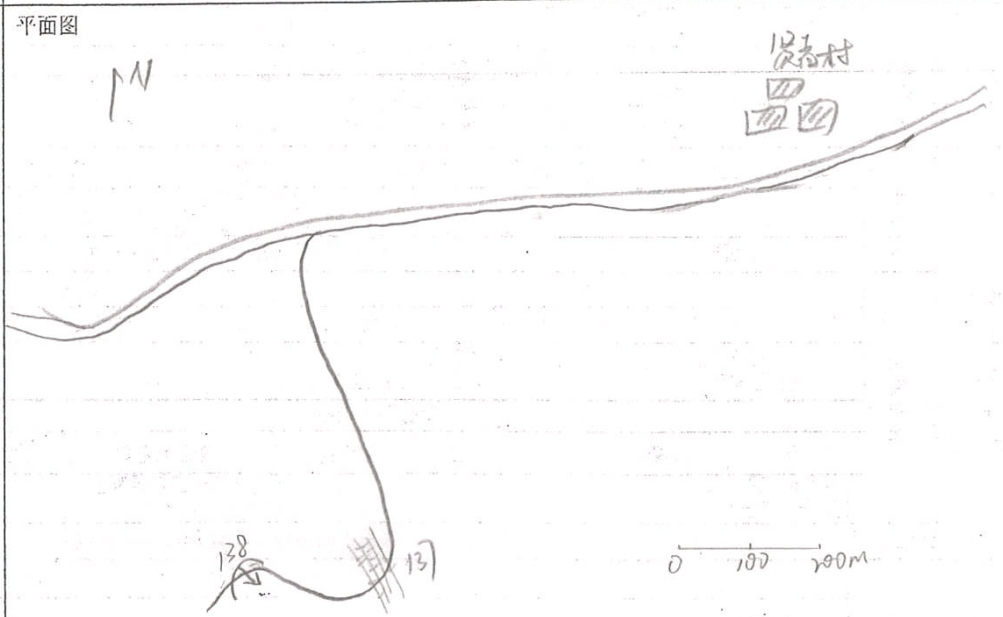 平面图
N
村
138
137
0 100 200m